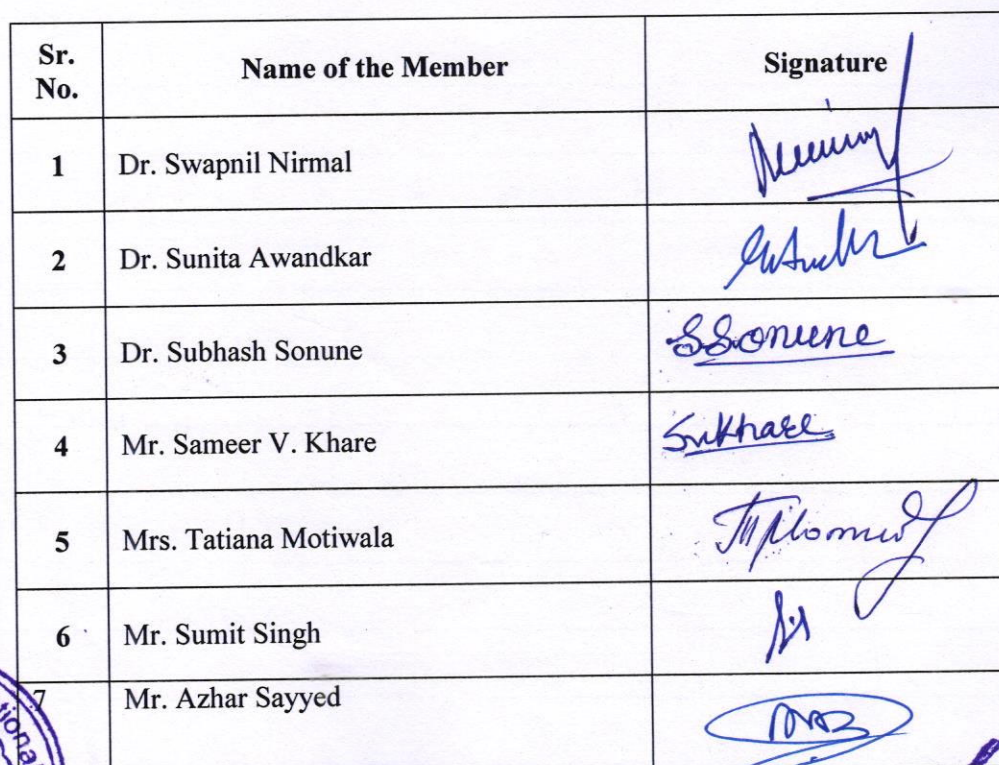 Sr. No.
Name of the Member
Signature
1
Dr. Swapnil Nirmal
2
Dr. Sunita Awandkar
3
Dr. Subhash Sonune
SSonune
4
Mr. Sameer V. Khare
SvKhare
5
Mrs. Tatiana Motiwala
6
Mr. Sumit Singh
7
Mr. Azhar Sayyed